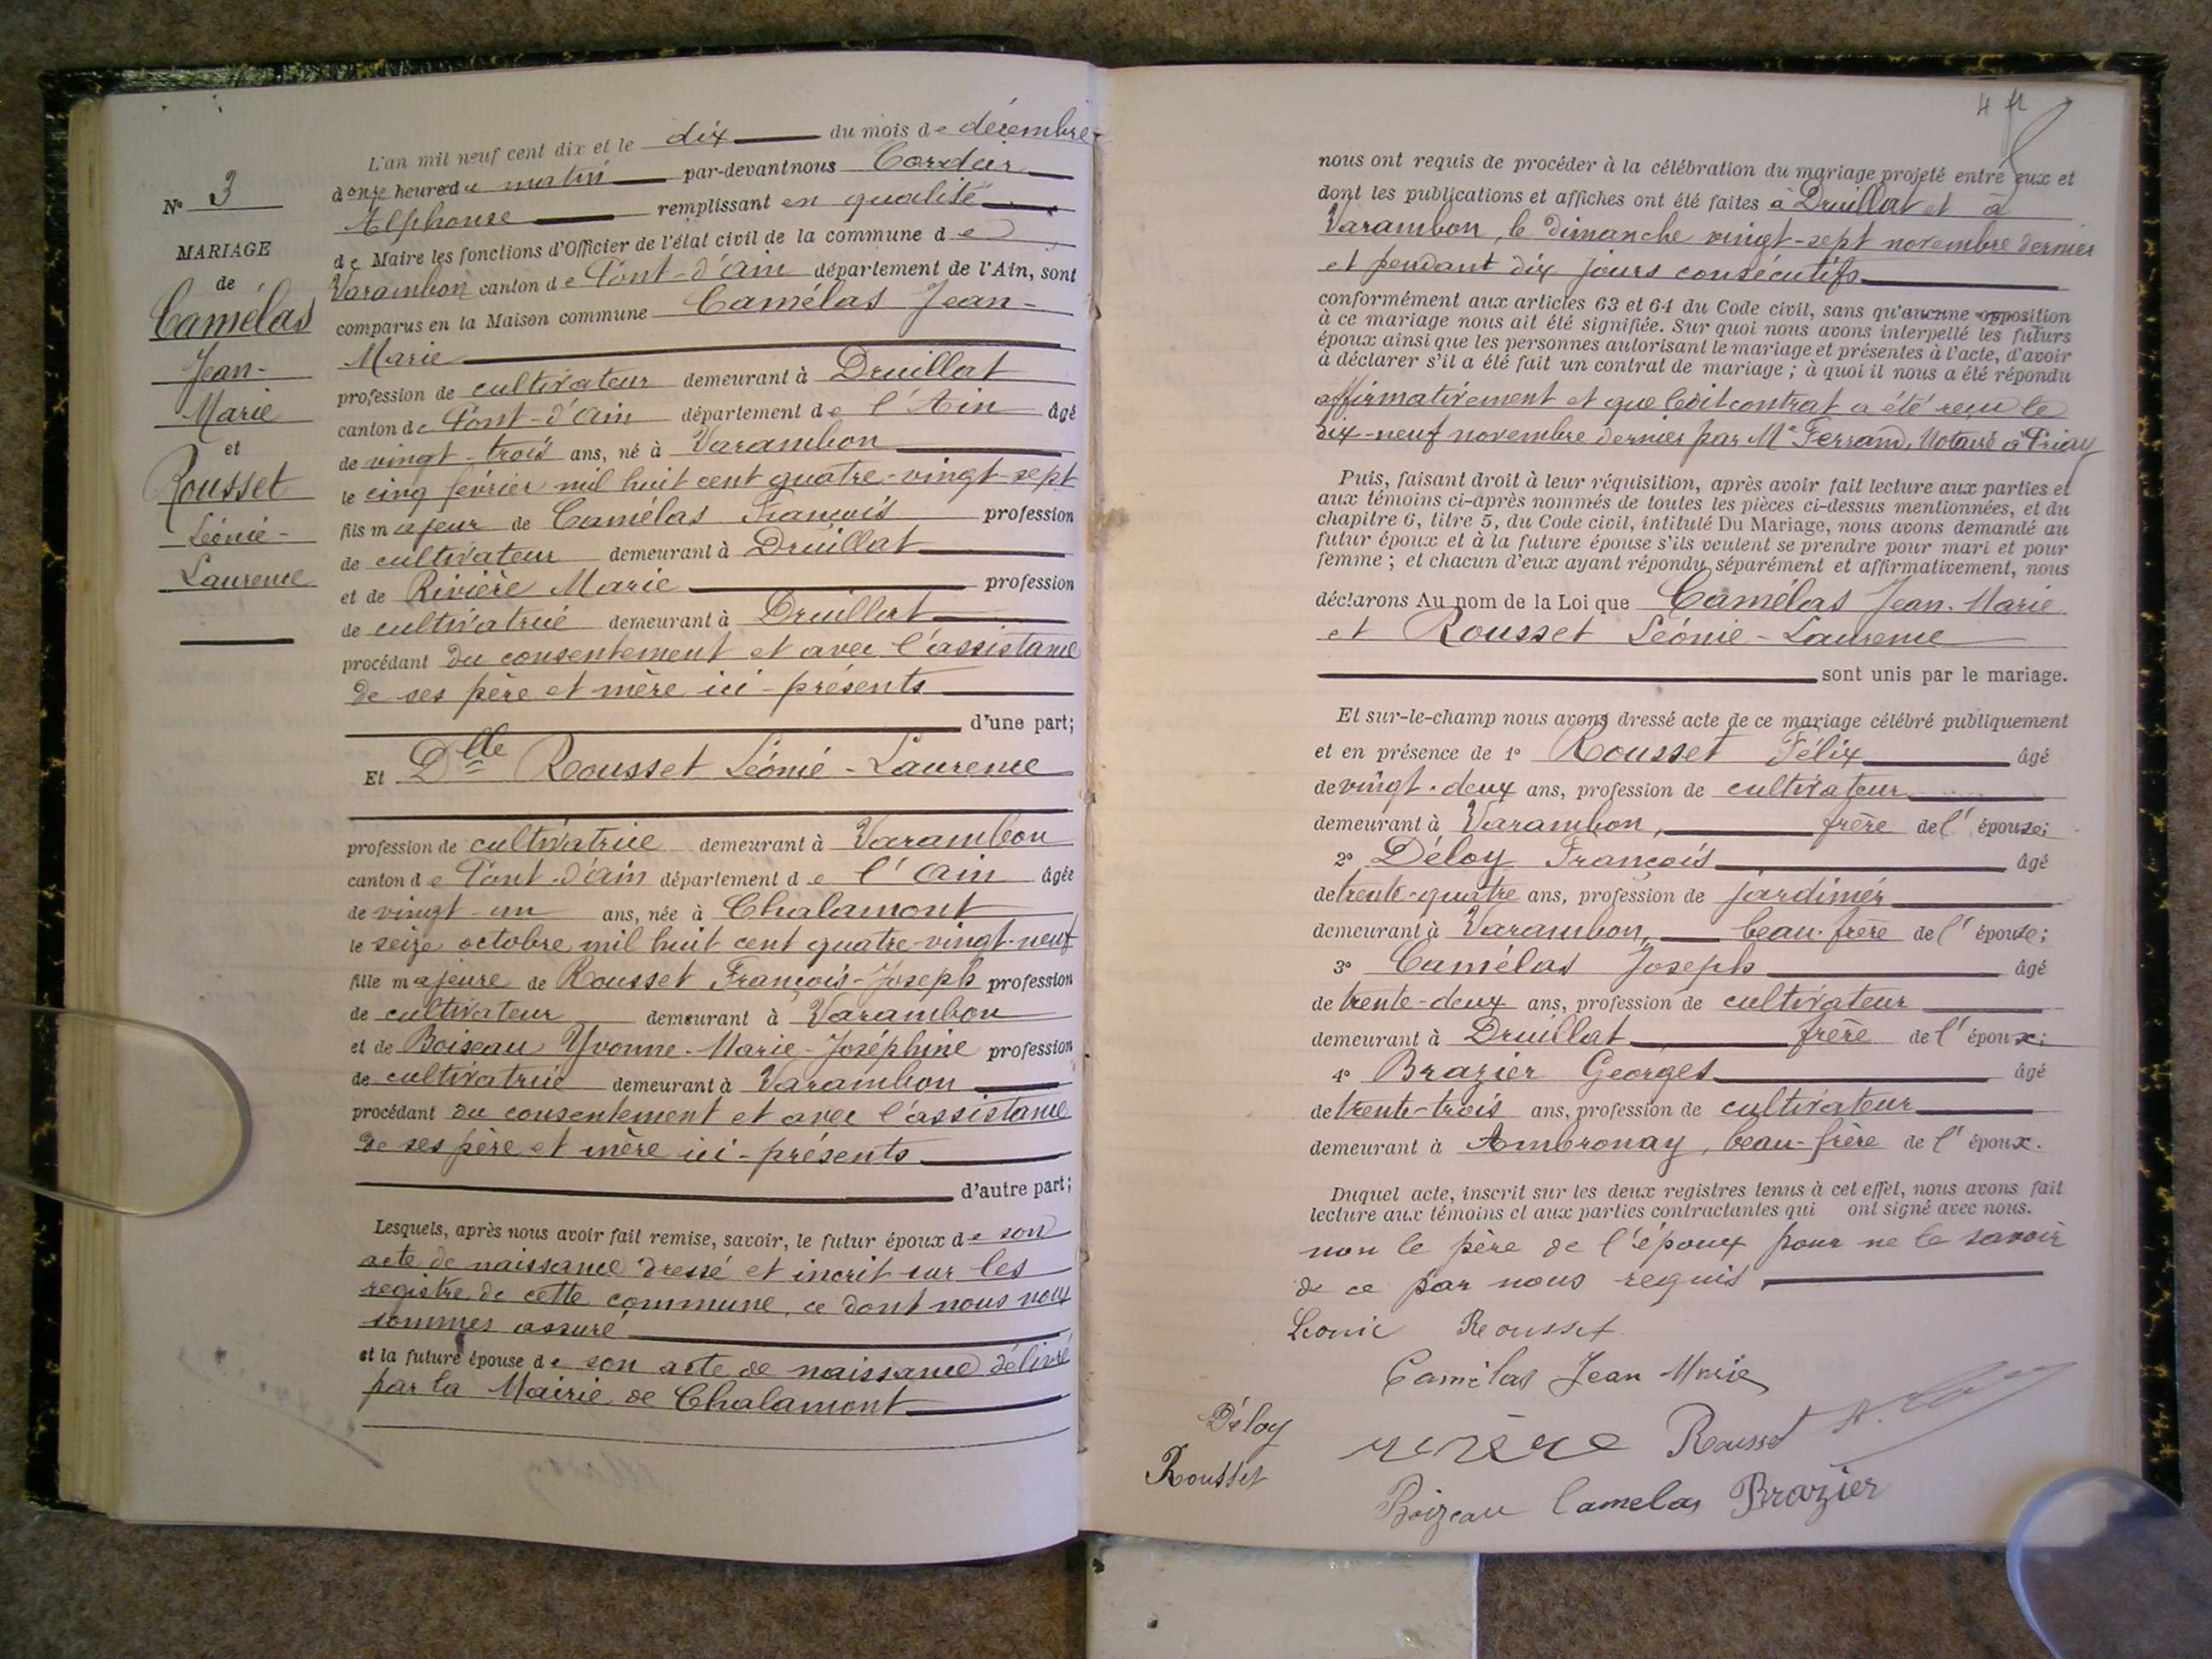 N° 3
MARIAGE
de
Camélas
Jean-
Marie
et
Rousset
Léonie-
Laurence
L'an mil neuf cent dix et le dix du mois de décembre
à onze heures du matin par-devant nous Cordier
Alphonse remplissant en qualité
de Maire les fonctions d'Officier de l'état civil de la commune de
Varambon canton de Pont-d'Ain département de l'Ain, sont
comparus en la Maison commune Camélas Jean-
Marie
profession de cultivateur demeurant à Druillat
canton de Pont-d'Ain département de l'Ain âgé
de vingt-trois ans, né à Varambon
le cinq février mil huit cent quatre-vingt-sept
fils majeur de Camélas François profession
de cultivateur demeurant à Druillat
et de Rivière Marie profession
de cultivatrice demeurant à Druillat
procédant du consentement et avec l'assistance
de ses père et mère ici-présents
d'une part;
Et Dlle Rousset Léonie-Laurence
profession de cultivatrice demeurant à Varambon
canton de Pont-d'Ain département de l'Ain âgée
de vingt-un ans, née à Chalamont
le seize octobre mil huit cent quatre-vingt-neuf
fille majeure de Rousset François-Joseph profession
de cultivateur demeurant à Varambon
et de Boiseau Yvonne-Marie-Joséphine profession
de cultivatrice demeurant à Varambon
procédant du consentement et avec l'assistance
de ses père et mère ici-présents
d'autre part;
Lesquels, après nous avoir fait remise, savoir, le futur époux de son
acte de naissance dressé et incrit sur les
registre de cette commune, ce dont nous nous
sommes assuré
et la future épouse de son acte de naissance délivré
par la Mairie de Chalamont
4 fr
nous ont requis de procéder à la célébration du mariage projeté entre eux et
dont les publications et affiches ont été faites à Druillat et à
Varambon, le dimanche vingt-sept novembre dernier
et pendant dix jours consécutifs
conformément aux articles 63 et 64 du Code civil, sans qu'aucune opposition
à ce mariage nous ait été signifiée. Sur quoi nous avons interpellé les futurs
époux ainsi que les personnes autorisant le mariage et présentes à l'acte, d'avoir
à déclarer s'il a été fait un contrat de mariage; à quoi il nous a été répondu
affirmativement et que ledit contrat a été reçu le
dix-neuf novembre dernier par Me Ferrand, Notaire à Priay
Puis, faisant droit à leur réquisition, après avoir fait lecture aux parties et
aux témoins ci-après nommés de toutes les pièces ci-dessus mentionnées, et du
chapitre 6, titre 5, du Code civil, intitulé Du Mariage, nous avons demandé au
futur époux et à la future épouse s'ils veulent se prendre pour mari et pour
femme; et chacun d'eux ayant répondu séparément et affirmativement, nous
déclarons Au nom de la Loi que Camélas Jean-Marie
et Rousset Léonie-Laurence
sont unis par le mariage.
Et sur-le-champ nous avons dressé acte de ce mariage célébré publiquement
et en présence de 1° Rousset Félix âgé
de vingt-deux ans, profession de cultivateur
demeurant à Varambon, frère de l'épouse;
2° Déloy François âgé
de trente-quatre ans, profession de jardinier
demeurant à Varambon, beau-frère de l'épouse;
3° Camélas Joseph âgé
de trente-deux ans, profession de cultivateur
demeurant à Druillat frère de l'époux;
4° Brazier Georges âgé
de trente-trois ans, profession de cultivateur
demeurant à Ambronay, beau-frère de l'époux.
Duquel acte, inscrit sur les deux registres tenus à cet effet, nous avons fait
lecture aux témoins et aux parties contractantes qui ont signé avec nous.
non le père de l'époux pour ne le savoir
de ce par nous requis
Leonie Rousset
Camélas Jean Marie
Déloy rivière Rousset
Rousset
Boizeau Camelas Brazier